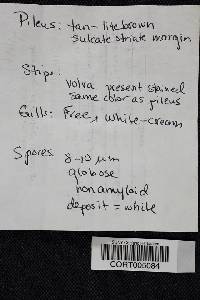 Pileus: tan-lite brown
sulcate striate margin
Stipe:
Volva present stained
same color as pileus
Gills: Free, white-cream
Spores 8-10 μm
globose
nonamyloid
deposit = white
CORT005084